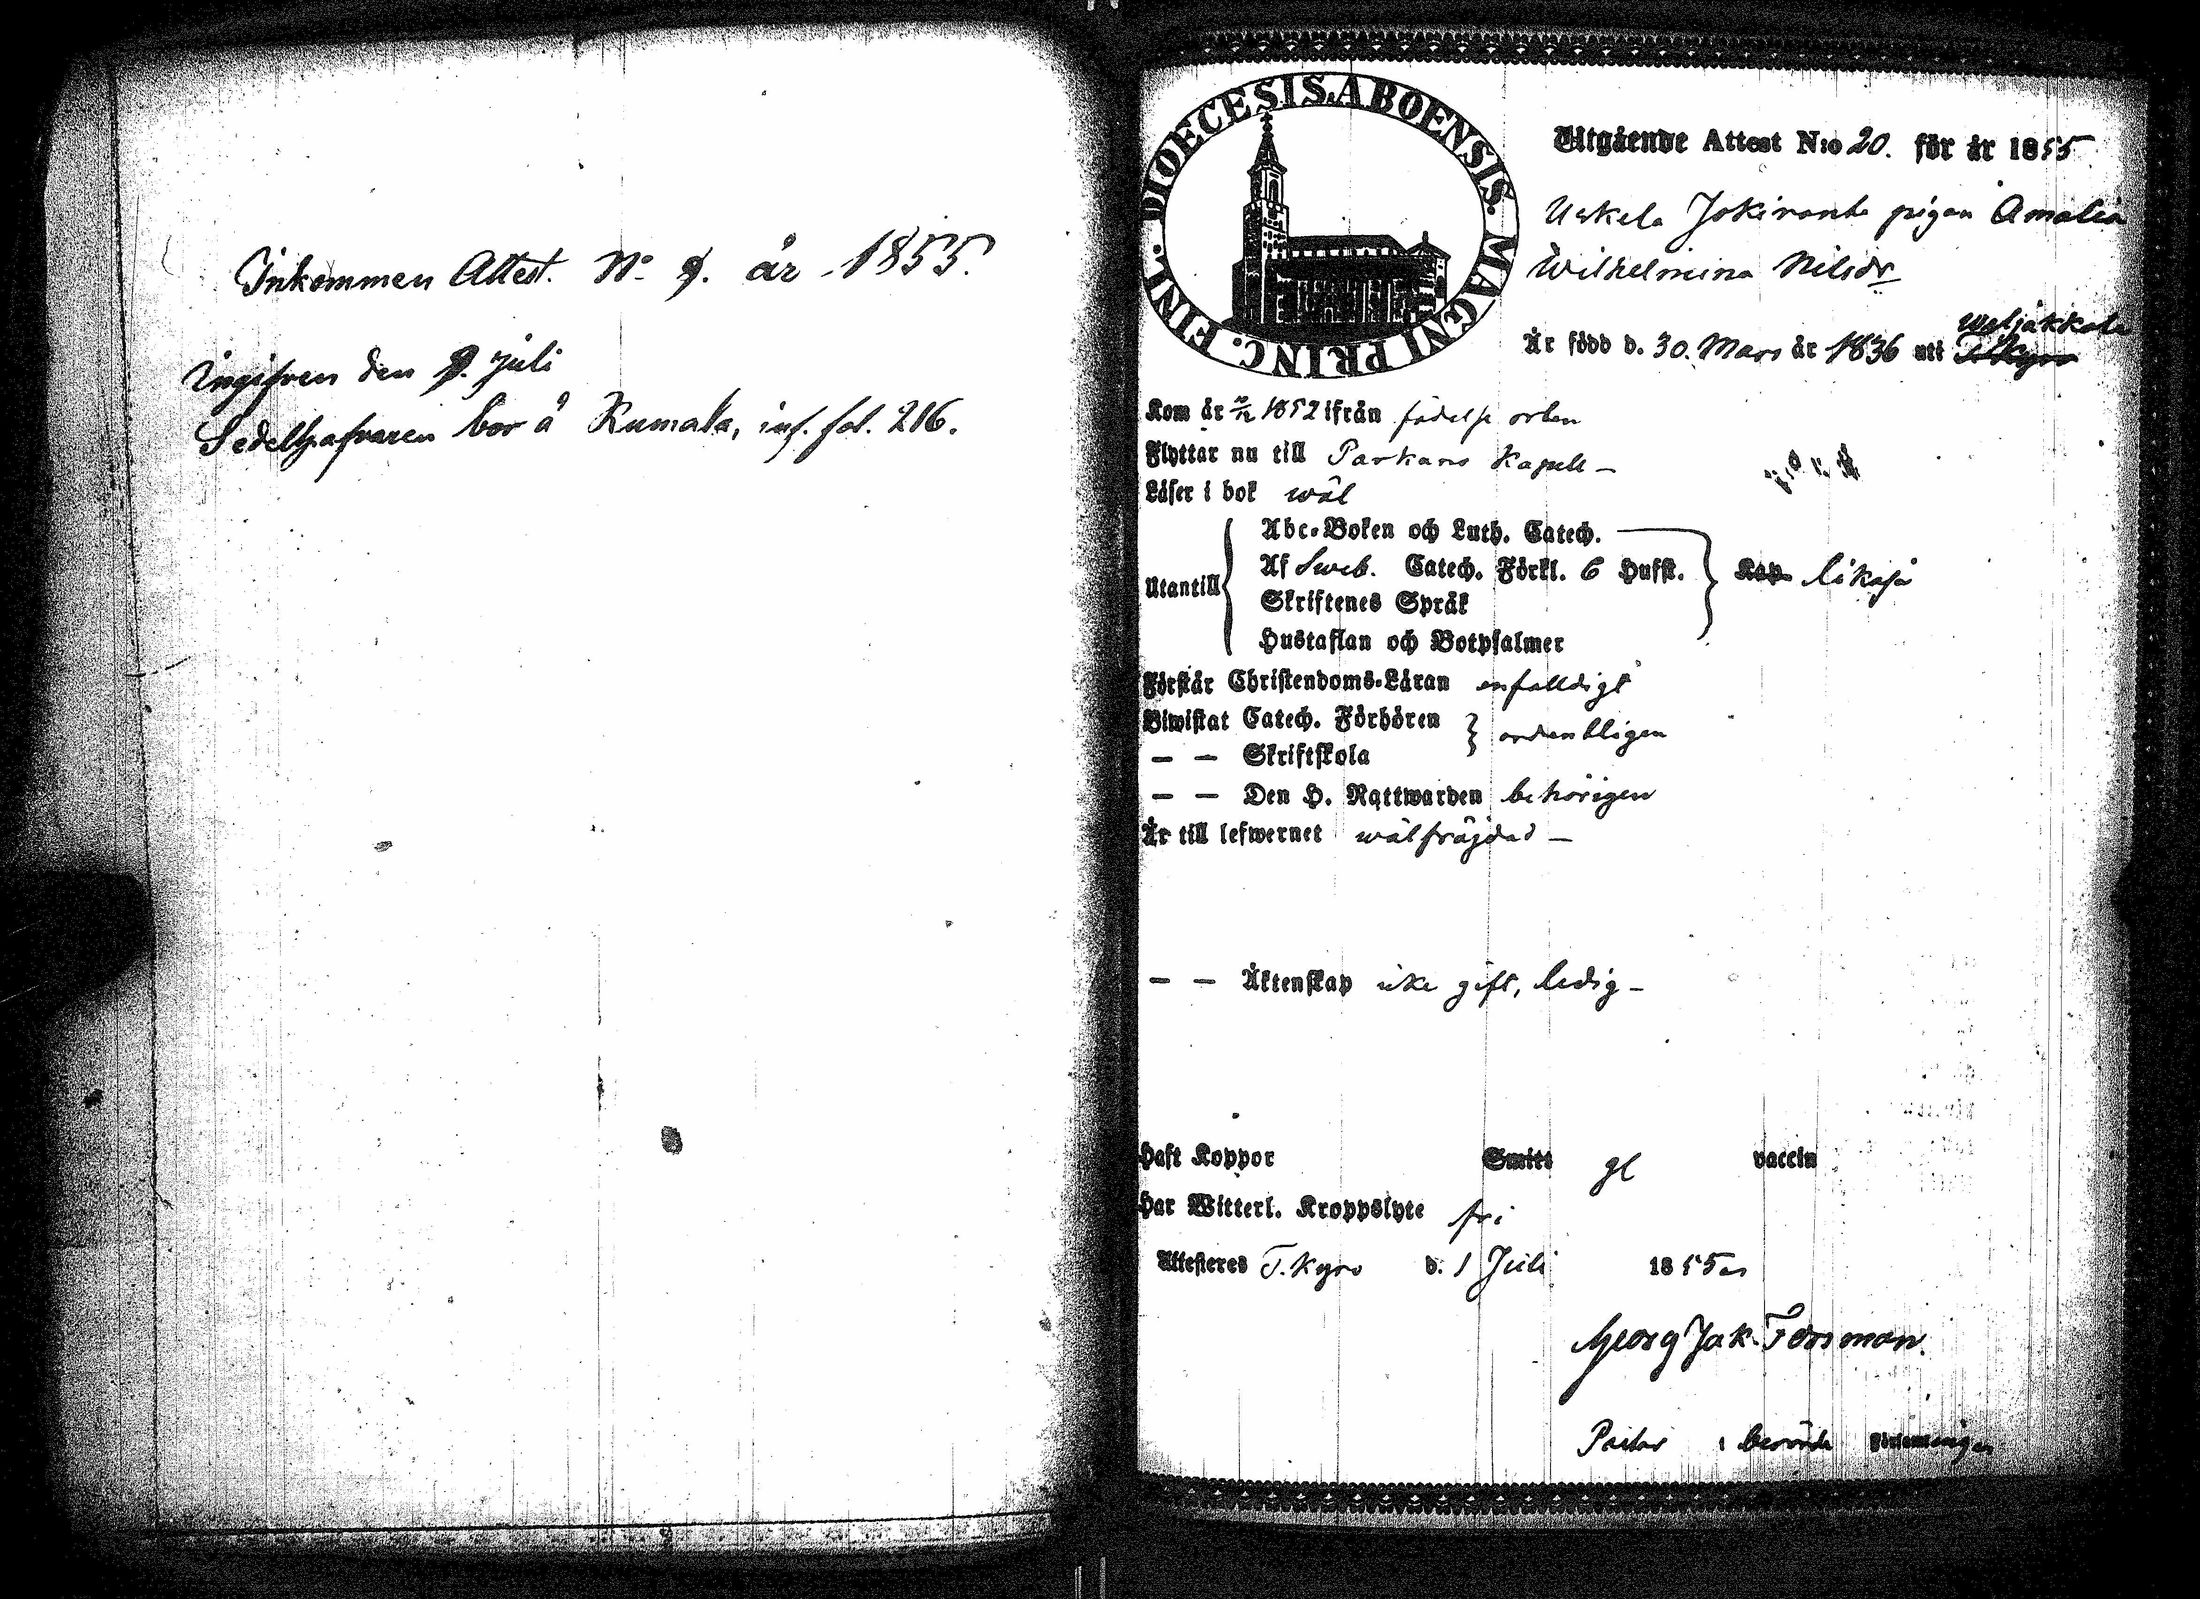 Inkommen Attest. No 9. år 1855.
Ingifven den 9. juli
Sedelhafvaren bor å Kumala, inf. fol. 216.
DIOECESIS.ABOENSIS. MAGNI PRINC. FINL.
Utgående Attest N:o 20. för år 1855
Jokiranta pigan Amalia
Wilhelmina Nilsdr
Weljakkala
Är född d. 30. Mars år 1836 uti T.Kyro
Kom år 1852 ifrån födelse orten
Flyttar nu till Parkano Kapell –
Läser i bok wäl
Abc-Boken och Luth. Catech.
Af Sweb. Catech. Förkl. 6 Hufst.
Utantill likaså
Skriftenes Språk
Hustaflan och Botpsalmer
Förstår Christendoms-Läran enfaldigt
Biwistat Catech. Förhören
ordentligen
— — Skriftskola
— — Den H. Nattwarden behörigen
Är till lefwernet wälfräjdad –
— — Äktenskap icke gift, ledig –
Haft Koppor Smitt vaccin
Har Witterl. Kroppslyte fri
Attesteres T.Kyro d. 1 Juli 1855
Georg Jak. Forsman.
Pastor i berörde Församlingen